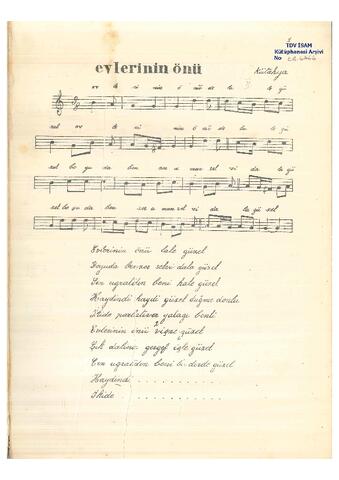 TDV İSAM
Kütüphanesi Arşivi
No
evlerinin önü
Kütahya
ev le ri nin ö nü de le gü
zel ev le ri nin ö nü de le gü
zel bo yu da ben ze a man sel vi da la gü
zel bo yu da ben ze a man sel vi da la gü zel
Evlerinin önü lale güzel
Boyuda benzer selvi dala güzel
Sen uğrattın beni hale güzel
Haydindi haydi güzel düğme donlu
İkide parlatıver yakagı benli
Evlerinin önü güzel
Çık dalına gergef işle güzel
Sen uğrattın beni bi derde güzel
Haydindi . . . . . . . . . .
İkide . . . . . . . . . .